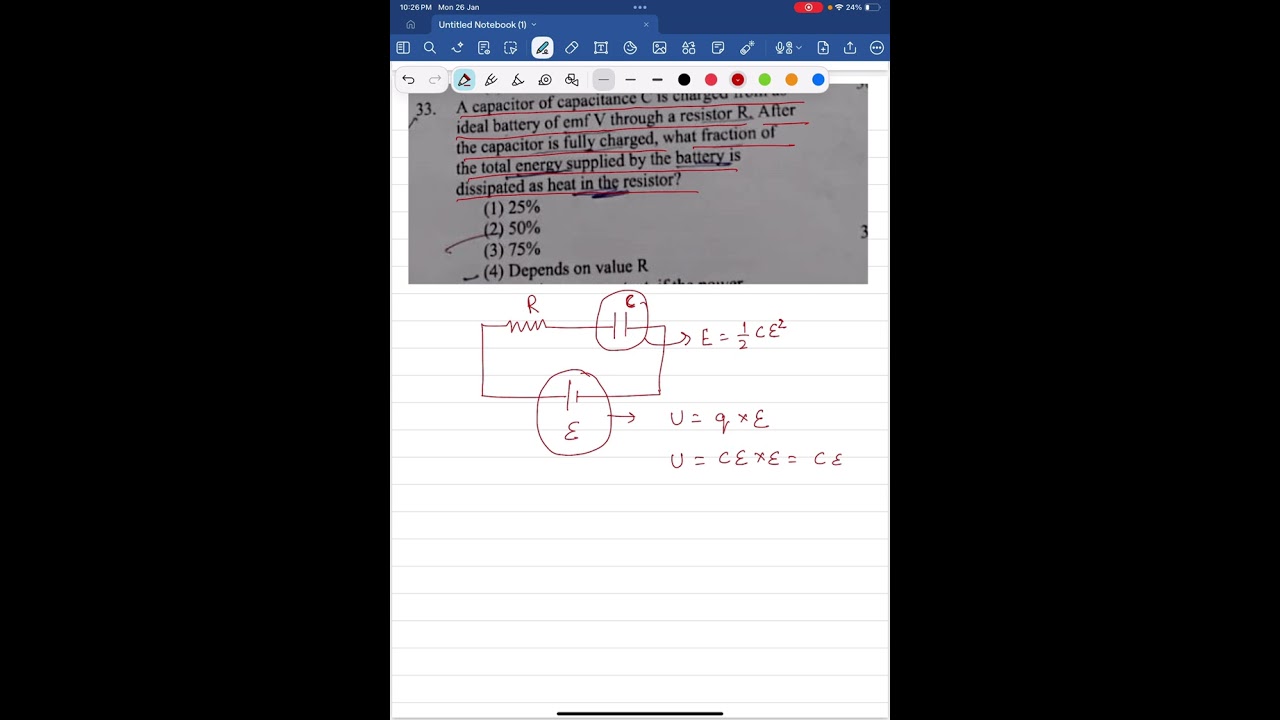 10:26 PM Mon 26 Jan
24%
Untitled Notebook (1)
33. A capacitor of capacitance C is charged from
ideal battery of emf V through a resistor R. After
the capacitor is fully charged, what fraction of
the total energy supplied by the battery is
dissipated as heat in the resistor?
(1) 25%
(2) 50%
3
(3) 75%
(4) Depends on value R
R
C
E = 1/2 Cε²
ε
U = q × ε
U = Cε × ε = Cε